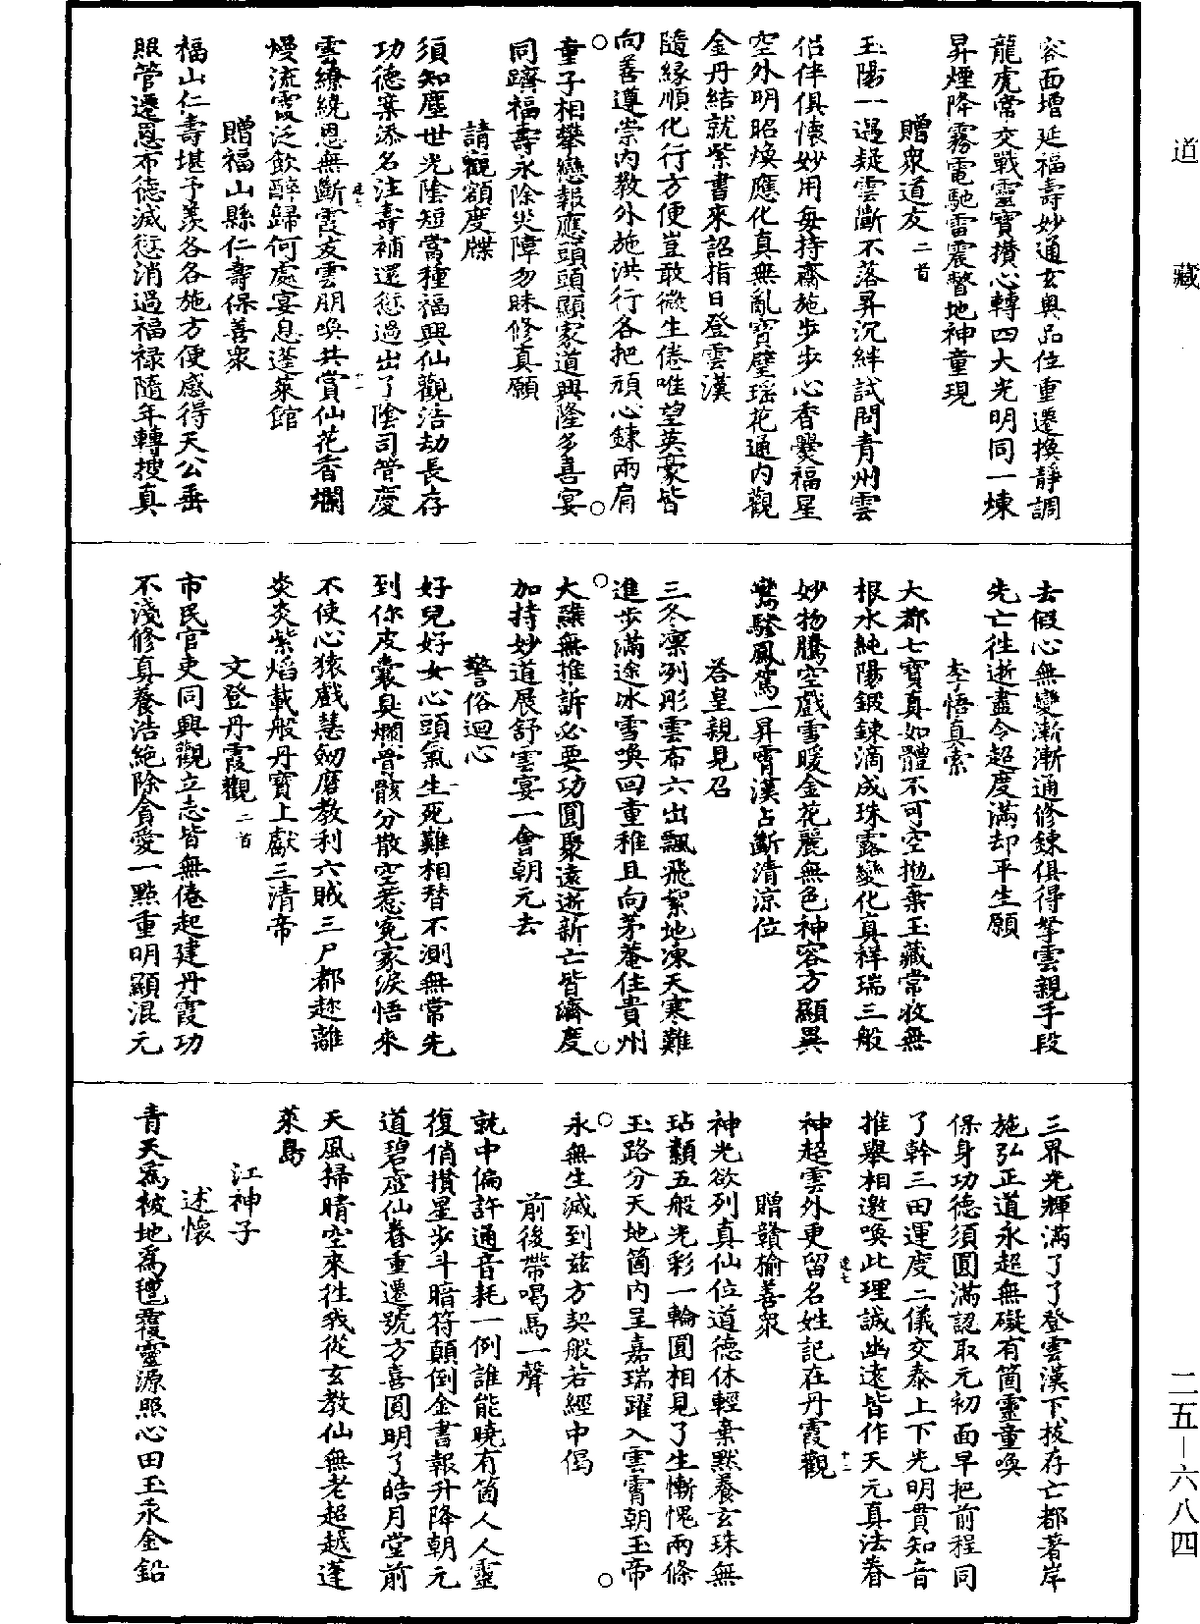 道藏
容面增延福壽妙通玄奧品位重遷換靜調
龍虎常交戰靈寶攢心轉四大光明同一煉
昇煙降霧電馳雷震瞥地神童現
贈衆道友二首
玉陽一過疑雲斷不落昇沉絆試問青州雲
侶伴俱懷妙用每持齋施步步心香爇福星
空外明昭煥應化真無亂寶璧瑶花通內觀
金丹結就紫書來詔指日登雲漢
隨緣順化行方便豈敢微生倦唯望英豪皆
向善遵崇內教外施洪行各把頑心鍊兩肩
童子相攀戀報應頭頭顯家道興隆多喜宴
同躋福壽永除災障勿昧修真願
請觀額度牒
須知塵世光陰短當種福興仙觀浩劫長存
功德案添名注壽補還愆過出了陰司管慶
雲繚繞恩無斷霞友雲朋喚共賞仙花香爛
熳流霞泛飲醉歸何處宴息蓬萊館
贈福山縣仁壽保善衆
福山仁壽堪予羨各各施方便感得天公垂
照管遷恩布德滅愆消過福禄隨年轉搜真
去假心無變漸漸通修鍊俱得拏雲親手段
先亡往逝盡令超度滿却平生願
李悟真索
大都七寶真如體不可空拋棄玉藏常收無
根水純陽鍛鍊滴成珠露變化真祥瑞三般
妙物騰空戲雪暖金花麗無色神容方顯異
鸞驂鳳駕一昇霄漢占斷清涼位
荅皇親見召
三冬凛冽彤雲布六出飄飛絮地凍天寒難
進步滿途冰雪喚回重稚且向茅菴住貴州
大醮無推訴必要功圓聚遠逝新亡皆濟度
加持妙道展舒雲宴一會朝元去
警俗迴心
好兒好女心頭氣生死難相替不測無常先
到你皮囊臭爛骨骸分散空惹冤家淚悟來
不使心猿戲慧劒磨教利六賊三尸都趂離
炎炎紫焰載般丹寶上獻三清帝
文登丹霞觀二首
市民官吏同興觀立志皆無倦起建丹霞功
不淺修真養浩絶除貪愛一點重明顯混元
三界光輝滿了了登雲漢下拔存亡都著岸
施弘正道永超無礙有箇靈童喚
保身功德須圓滿認取元初面早把前程同
了幹三田運度二儀交泰上下光明貫知音
推舉相邀喚此理誠幽遠皆作天元真法眷
神超雲外更留名姓記在丹霞觀
贈贛榆善衆
神光欲列真仙位道德休輕棄黙養玄珠無
玷纇五般光彩一輪圓相見了生慚愧兩條
玉路分天地箇內呈嘉瑞躍入雲霄朝玉帝
永無生滅到兹方契般若經中偈
前後帶喝馬一聲
就中偏許通音耗一例誰能曉有箇人人靈
復俏攢星步斗暗符顛倒金書報升降朝元
道碧虛仙眷重遷號方喜圓明了皓月堂前
天風掃晴空來往我從玄教仙無老超越蓬
萊島
江神子
述懷
青天爲被地爲氊覆靈源照心田玉汞金鉛
二五—六八四